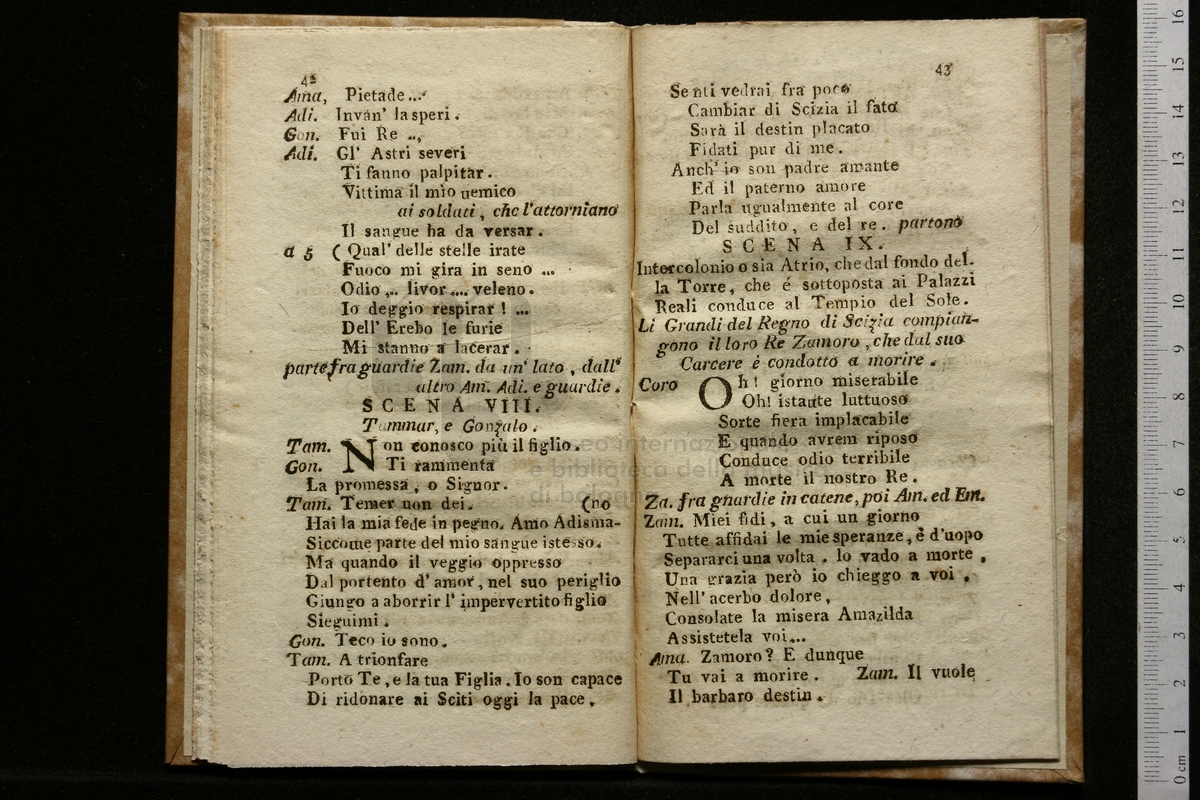 42
Ama, Pietade...
Adi. Invan' la speri.
Gon. Fui Re ..,
Adi. Gl' Astri severi
Ti fanno palpitar.
Vittima il mio nemico
ai soldati, che l'attorniano
Il sangue ha da versar.
a 5 ( Qual' delle stelle irate
Fuoco mi gira in seno ...
Odio ,.. livor .... veleno.
Io deggio respirar ! ...
Dell' Erebo le furie
Mi stanno a lacerar.
parte fra guardie Zam. da un' lato, dall'
altro Am. Adi. e guardie.
SCENA VIII.
Tammar, e Gonzalo.
Tam. Non conosco più il figlio.
Gon. Ti rammenta
La promessa, o Signor.
Tam. Temer non dei. (no
Hai la mia fede in pegno. Amo Adisma-
Siccome parte del mio sangue istesso.
Ma quando il veggio oppresso
Dal portento d'amor, nel suo periglio
Giungo a aborrir l'impervertito figlio
Sieguimi.
Gon. Teco io sono.
Tam. A trionfare
Porto Te, e la tua Figlia. Io son capace
Di ridonare ai Sciti oggi la pace.
43
Se nti vedrai fra poco
Cambiar di Scizia il fato
Sarà il destin placato
Fidati pur di me.
Anch' io son padre amante
Ed il paterno amore
Parla ugualmente al core
Del suddito, e del re. partono
SCENA IX.
Intercolonio o sia Atrio, che dal fondo del-
la Torre, che é sottoposta ai Palazzi
Reali conduce al Tempio del Sole.
Li Grandi del Regno di Scizia compian-
gono il loro Re Zamoro, che dal suo
Carcere è condotto a morire.
Coro Oh! giorno miserabile
Oh! istante luttuoso
Sorte fiera implacabile
E quando avrem riposo
Conduce odio terribile
A morte il nostro Re.
Za. fra gnardie in catene, poi Am. ed Em.
Zam. Miei fidi, a cui un giorno
Tutte affidai le mie speranze, è d'uopo
Separarci una volta. Io vado a morte,
Una grazia però io chieggo a voi,
Nell' acerbo dolore,
Consolate la misera Amazilda
Assistetela voi...
Ama. Zamoro? E dunque
Tu vai a morire. Zam. Il vuole
Il barbaro destin.